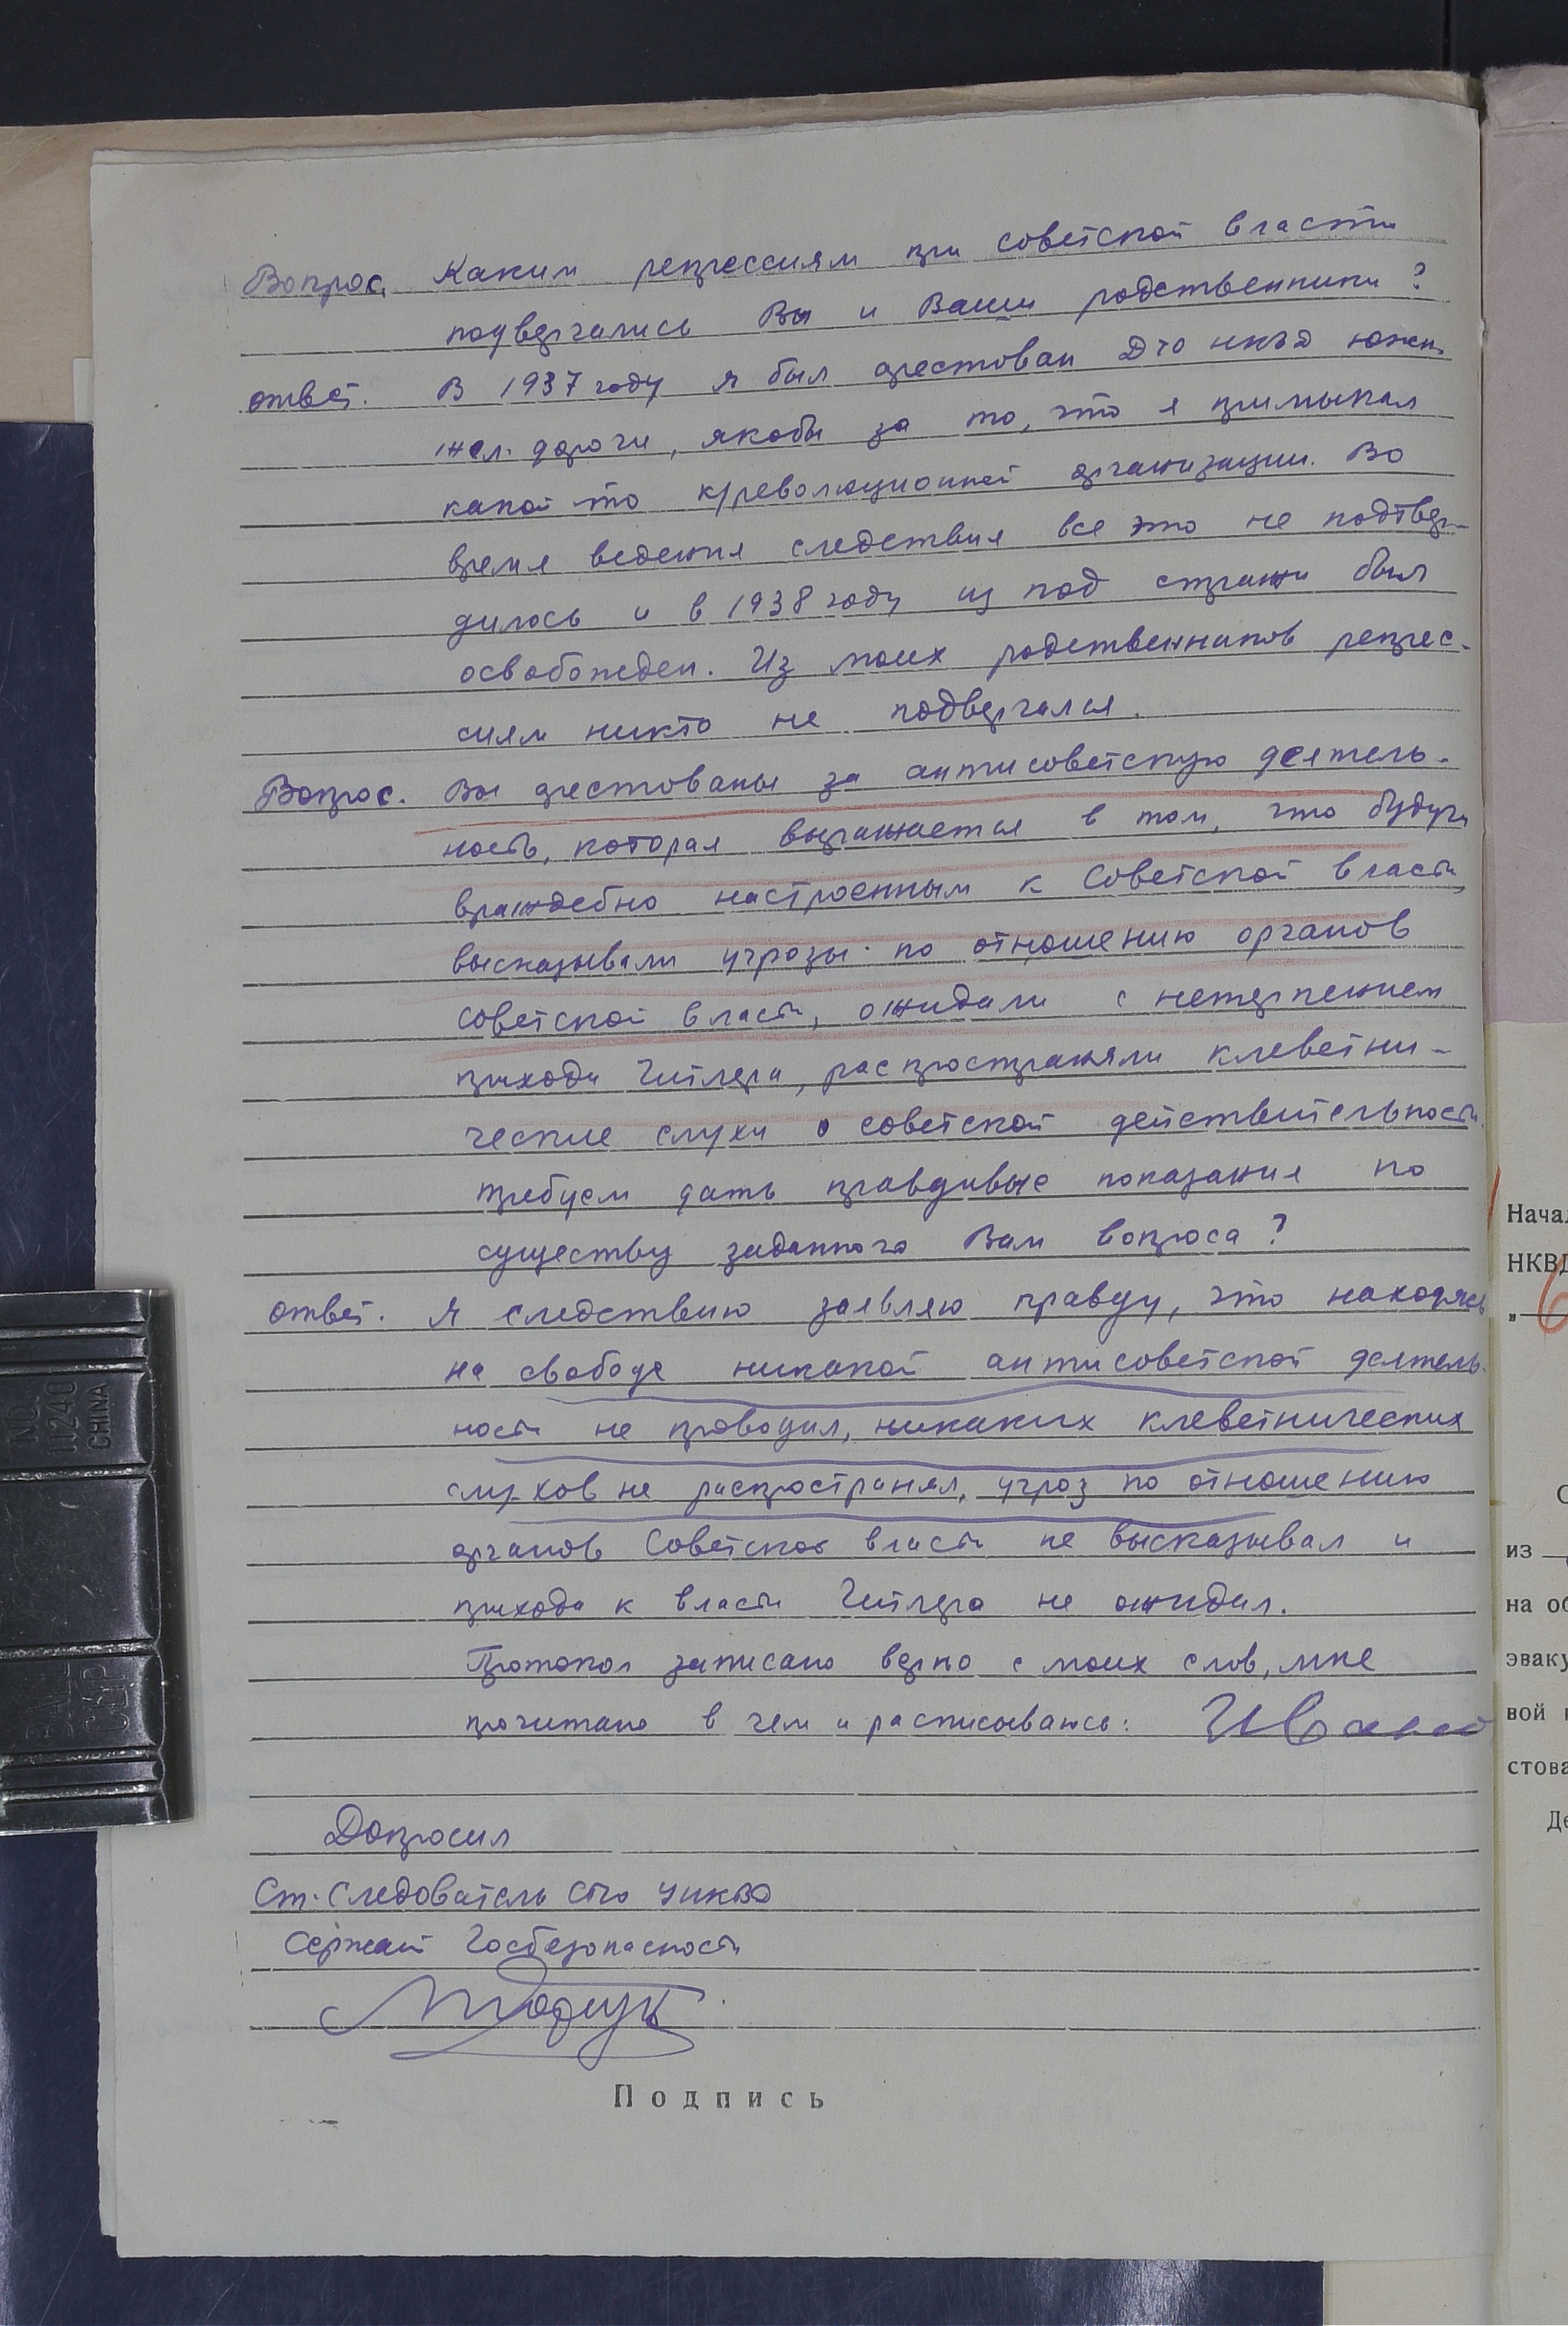 Вопрос. Каким репрессиям при советской власти
подвергались Вы и Ваши родственники?
ответ. В 1937 году я был арестован ДТО НКВД южн.
жел. дороги, якобы за то, что я примыкал
какой то к/революционной организации. Во
время ведения следствия все это не подтвер-
дилось и в 1938 году из под стражи был
освобожден. Из моих родственников репрес-
сиям никто не подвергался.
Вопрос. Вы арестованы за антисоветскую деятель-
ность, которая выражается в том, что будучи
враждебно настроенным к Советской власти,
высказывали угрозы по отношению органов
советской власти, ожидали с нетерпением
прихода Гитлера, распространяли клеветни-
ческие слухи о советской действительности.
требуем дать правдивые показания по
существу заданного Вам вопроса?
ответ. Я следствию заявляю правду, что находясь
на свободе никакой антисоветской деятель-
ности не проводил, никаких клеветнических
слухов не распространял, угроз по отношению
органов Советской власти не высказывал и
прихода к власти Гитлера не ожидал.
Протокол записано верно с моих слов, мне
прочитано в чем и расписываюсь:
Допросил
Ст. Следователь СГО УНКВД
Сержант Госбезопасности
Подпись
Начал
НКВД
"
С
из
на об
эваку
вой
стова
Де
NO.
11240
CHINA